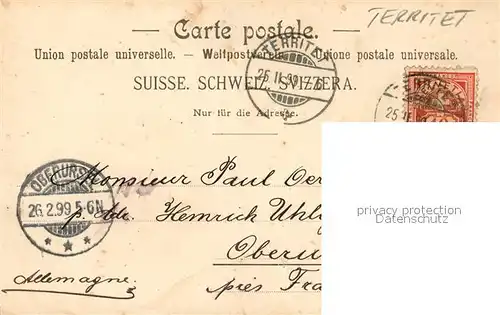 Carte postale.
TERRITET
Union postale universelle. — Weltpostverein. — Unione postale universale.
TERRITET
25.II.99.
SUISSE. SCHWEIZ. SVIZZERA.
25.II.
Nur für die Adresse.
OBERURSEL
26.2.99.5-6N
Monsieur Paul Oer
p. Adr. Heinrich Uhly
Oberu
Allemagne.
près Fra
privacy protection
Datenschutz